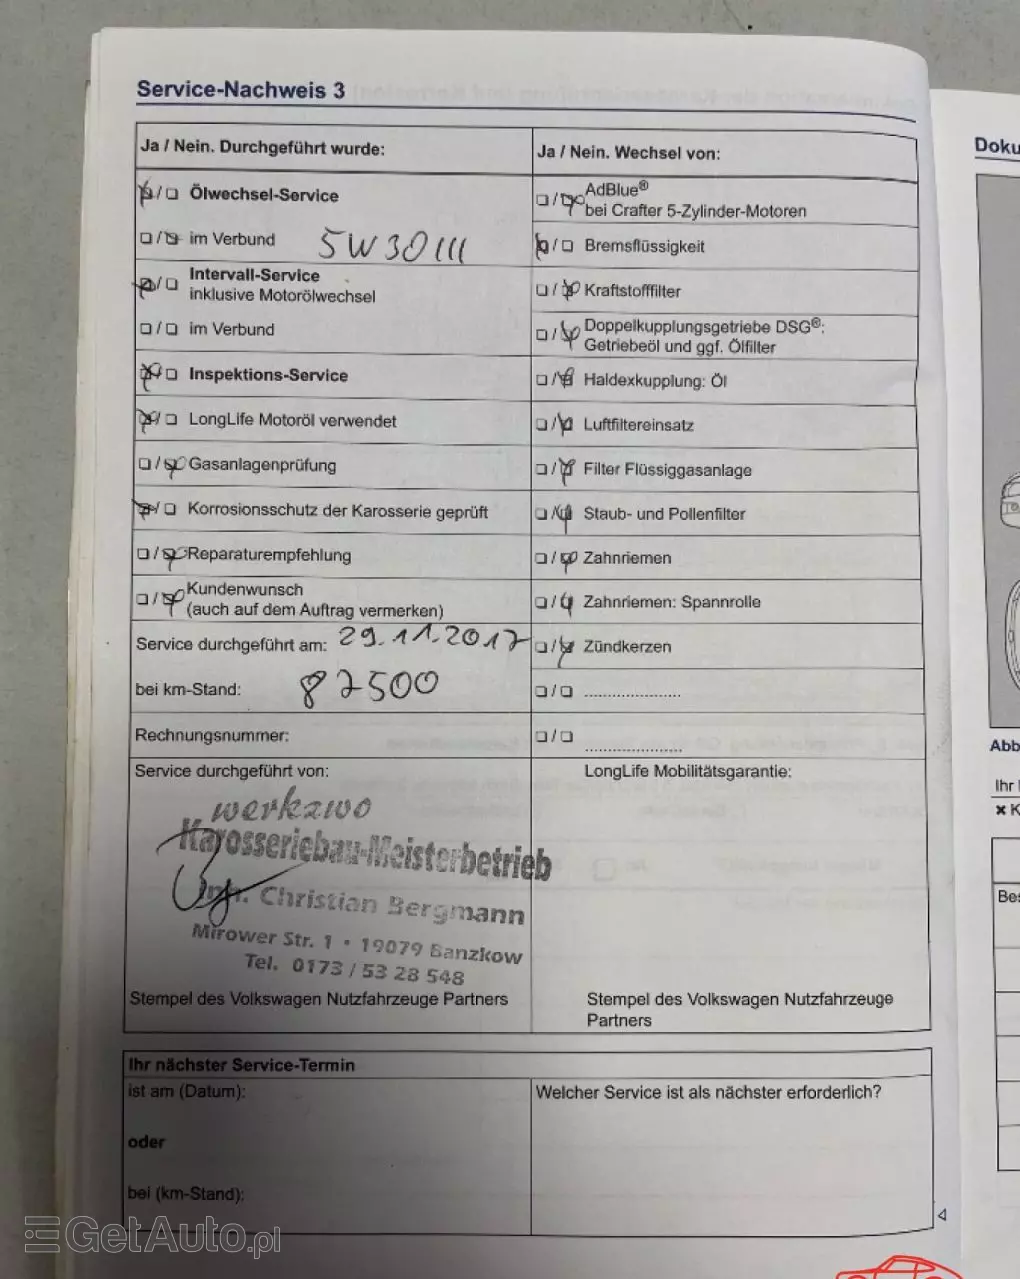 Service-Nachweis 3
Ja / Nein. Durchgeführt wurde:
Ölwechsel-Service
im Verbund 5W30 III
Intervall-Service
inklusive Motorölwechsel
im Verbund
Inspektions-Service
LongLife Motoröl verwendet
Gasanlagenprüfung
Korrosionsschutz der Karosserie geprüft
Reparaturempfehlung
Kundenwunsch
(auch auf dem Auftrag vermerken)
Service durchgeführt am: 29.11.2017
bei km-Stand: 87500
Rechnungsnummer:
Service durchgeführt von:
werkzwo
Karosseriebau-Meisterbetrieb
Inh. Christian Bergmann
Mirower Str. 1 • 19079 Banzkow
Tel. 0173 / 53 28 548
Stempel des Volkswagen Nutzfahrzeuge Partners
Ja / Nein. Wechsel von:
AdBlue®
bei Crafter 5-Zylinder-Motoren
Bremsflüssigkeit
Kraftstofffilter
Doppelkupplungsgetriebe DSG®:
Getriebeöl und ggf. Ölfilter
Haldexkupplung: Öl
Luftfiltereinsatz
Filter Flüssiggasanlage
Staub- und Pollenfilter
Zahnriemen
Zahnriemen: Spannrolle
Zündkerzen
LongLife Mobilitätsgarantie:
Stempel des Volkswagen Nutzfahrzeuge
Partners
Ihr nächster Service-Termin
ist am (Datum):
oder
bei (km-Stand):
Welcher Service ist als nächster erforderlich?
Doku
Abb
Ihr
Bes
GetAuto.pl